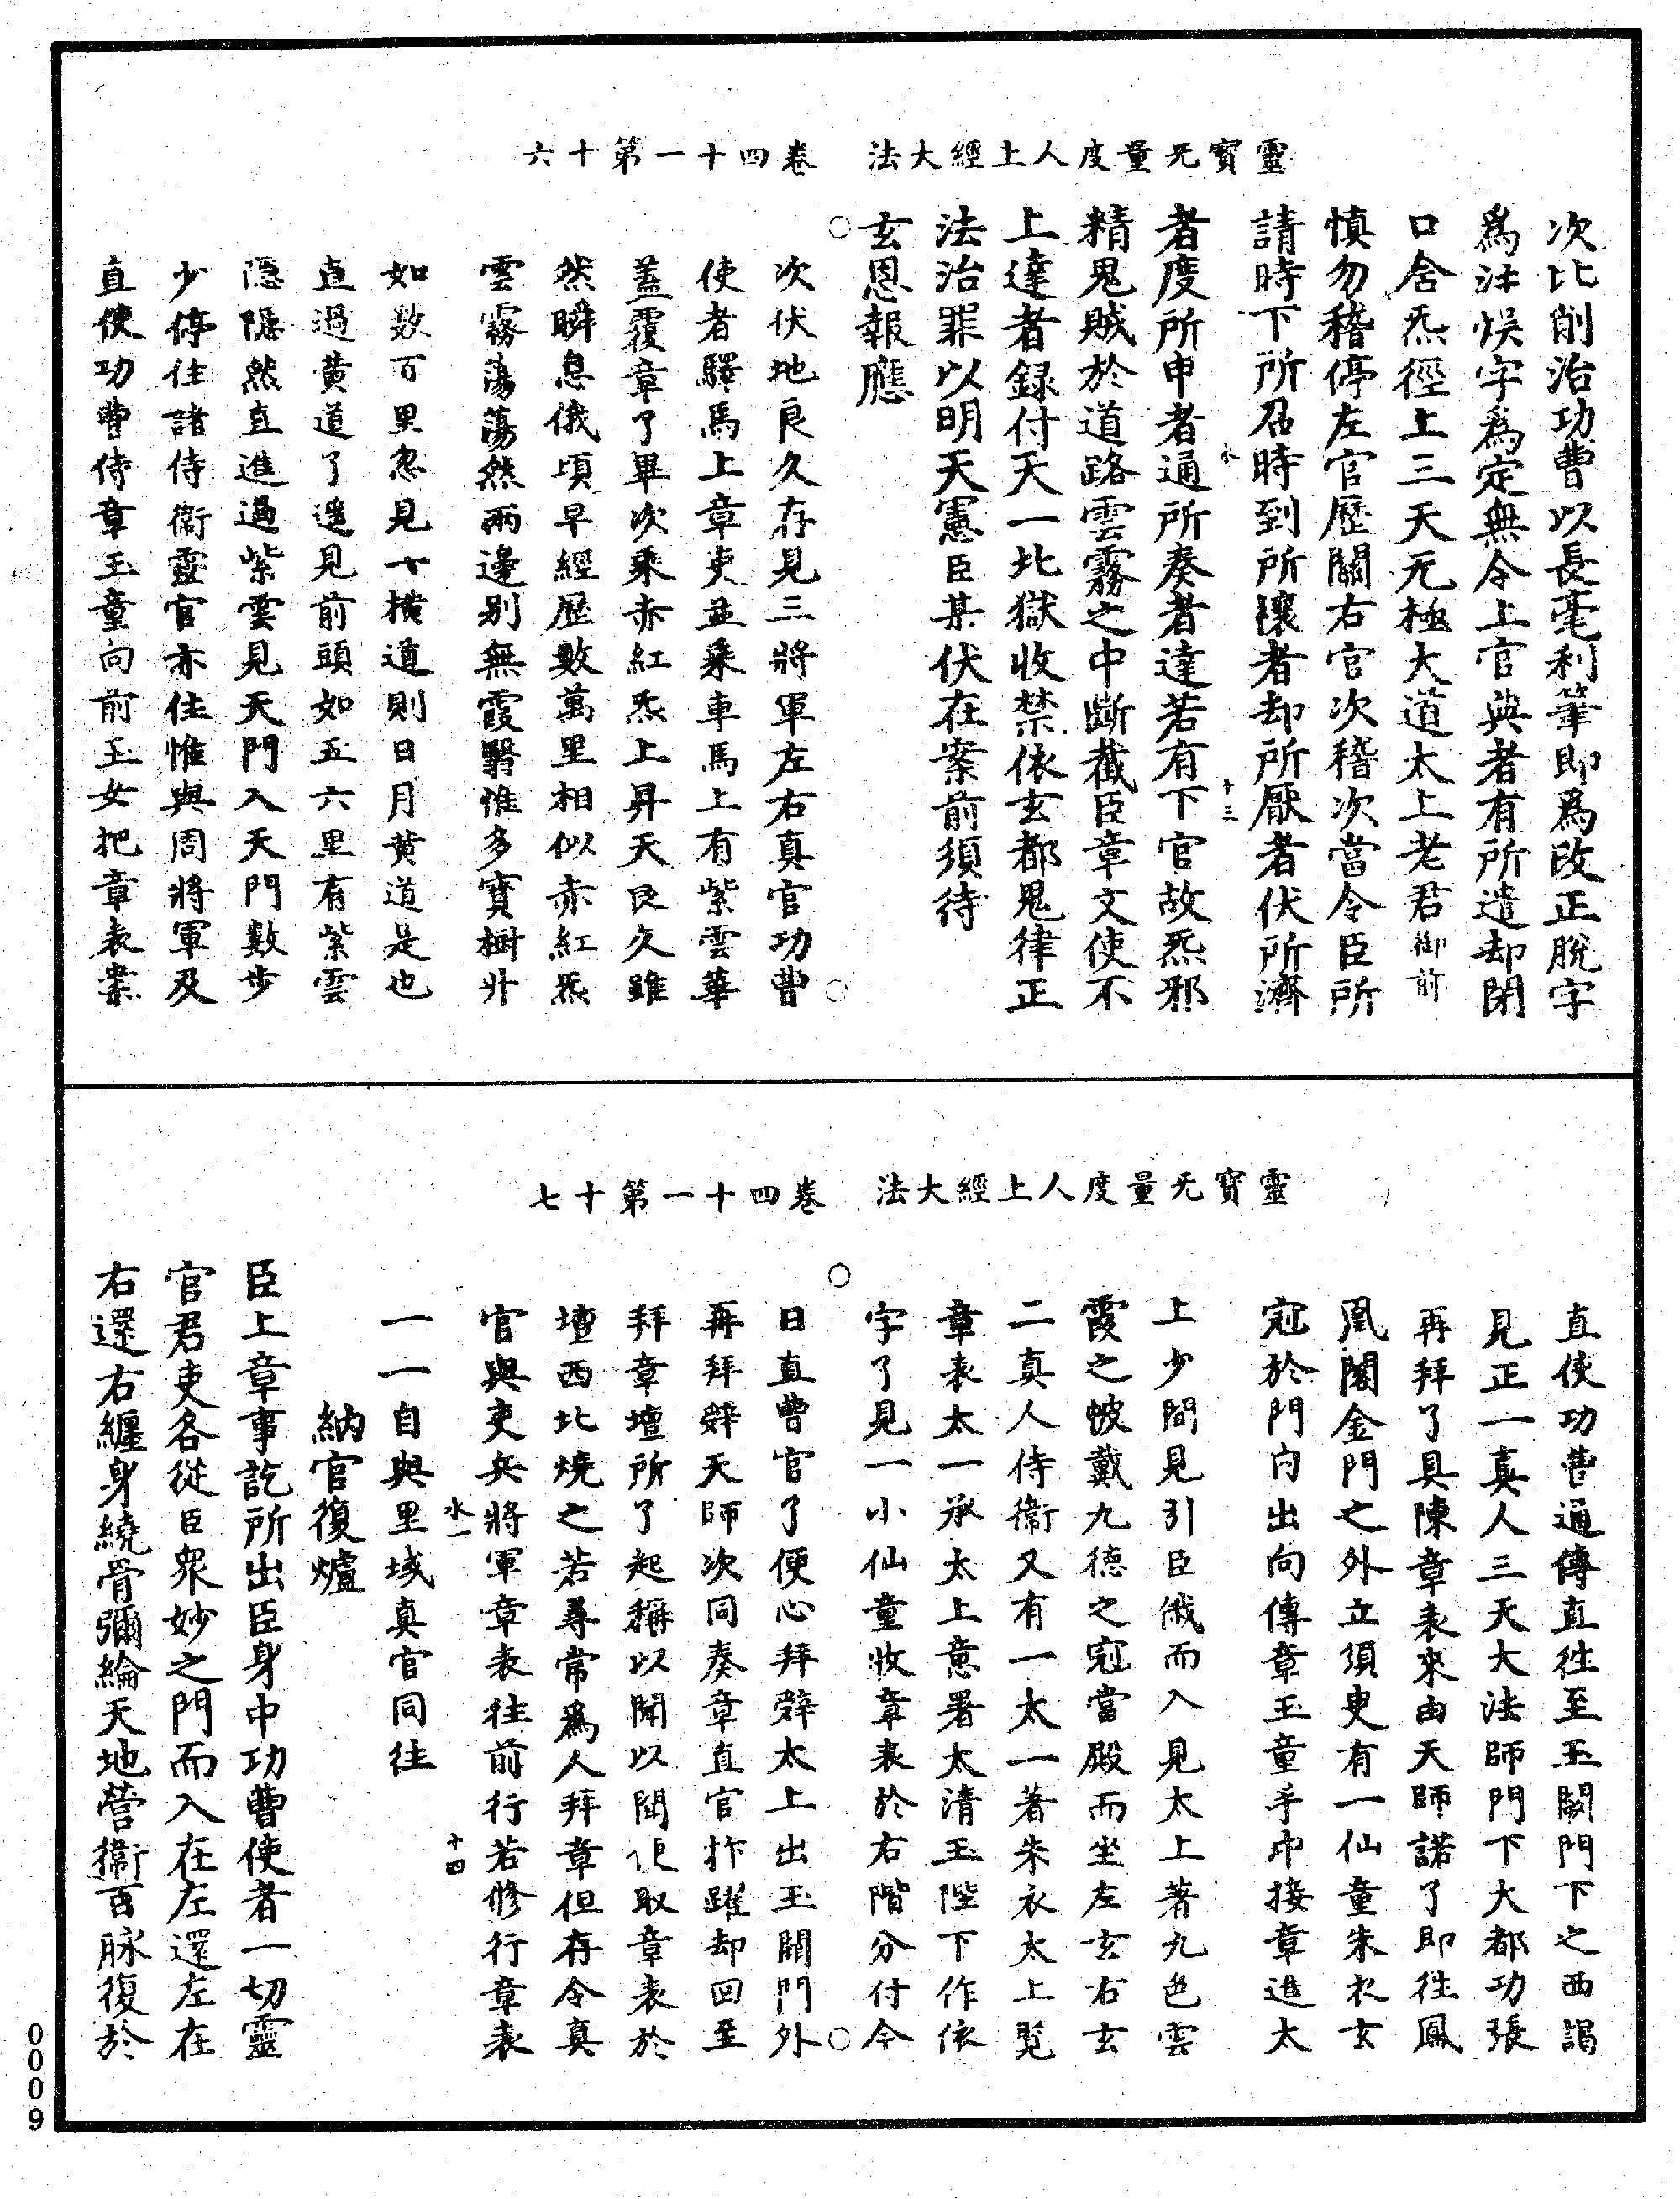 靈寶无量度人上經大法　卷四十一第十六
次比削治功曹以長毫利筆即爲改正脫字
爲注悮字爲定無令上官典者有所遣却閉
口舍炁徑上三天无極大道太上老君御前
慎勿稽停左官歷關右官次稽次當令臣所
請時下所召時到所懷者却所厭者伏所濟
水　十三
者度所申者通所奏者達若有下官故炁邪
精鬼賊於道路雲霧之中斷截臣章文使不
上達者録付天一北獄收禁依玄都鬼律正
法治罪以明天憲臣某伏在案前須待
玄恩報應
次伏地良久存見三將軍左右真官功曹
使者驛馬上章吏並乘車馬上有紫雲華
蓋覆章了畢次乘赤紅炁上昇天良久雖
然瞬息俄頃早經歷數萬里相似赤紅炁
雲霧蕩蕩然兩邊别無霞翳惟多寶樹外
如數百里忽見十橫道則日月黄道是也
直過黄道了遥見前頭如五六里有紫雲
隱隱然直進過紫雲見天門入天門數步
少停住諸侍衛靈官亦住惟與周將軍及
直使功曹侍章玉童向前玉女把章表案
靈寶无量度人上經大法　卷四十一第十七
直使功曹通傳直徃至玉闕門下之西謁
見正一真人三天大法師門下大都功張
再拜了具陳章表來由天師諾了即徃鳳
凰閣金門之外立須臾有一仙童朱衣玄
冠於門内出向傳章玉童手中接章進太
上少間見引臣俄而入見太上著九色雲
霞之帔戴九德之冠當殿而坐左玄右玄
二真人侍衛又有一太一著朱衣太上覧
章表太一承太上意署太清玉陛下作依
字了見一小仙童收章表於右階分付今
日直曹官了便心拜辭太上出玉關門外
再拜辭天師次同奏章直官抃躍却回至
拜章壇所了起稱以聞以聞便取章表於
壇西北燒之若尋常爲人拜章但存令真
官與吏兵將軍章表往前行若修行章表
水一　十四
一一自與里域真官同往
納官復爐
臣上章事訖所出臣身中功曹使者一切靈
官君吏各從臣衆妙之門而入在左還左在
右還右纏身繞骨彌綸天地營衛百脉復於
0009